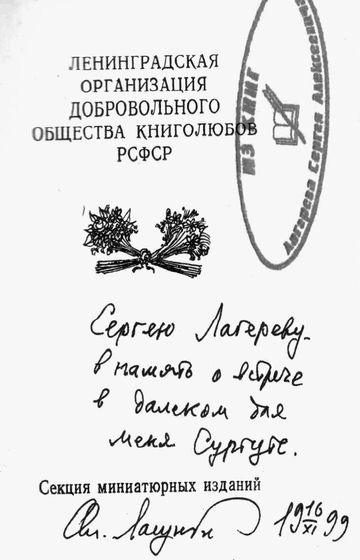 ЛЕНИНГРАДСКАЯ
ОРГАНИЗАЦИЯ
ДОБРОВОЛЬНОГО
ОБЩЕСТВА КНИГОЛЮБОВ
РСФСР
ИЗ КНИГ
Лагерева Сергея Алексеевича
Сергею Лагереву -
в память о встрече
в далеком для
меня Сургуте.
Секция миниатюрных изданий
19 16/XI 99